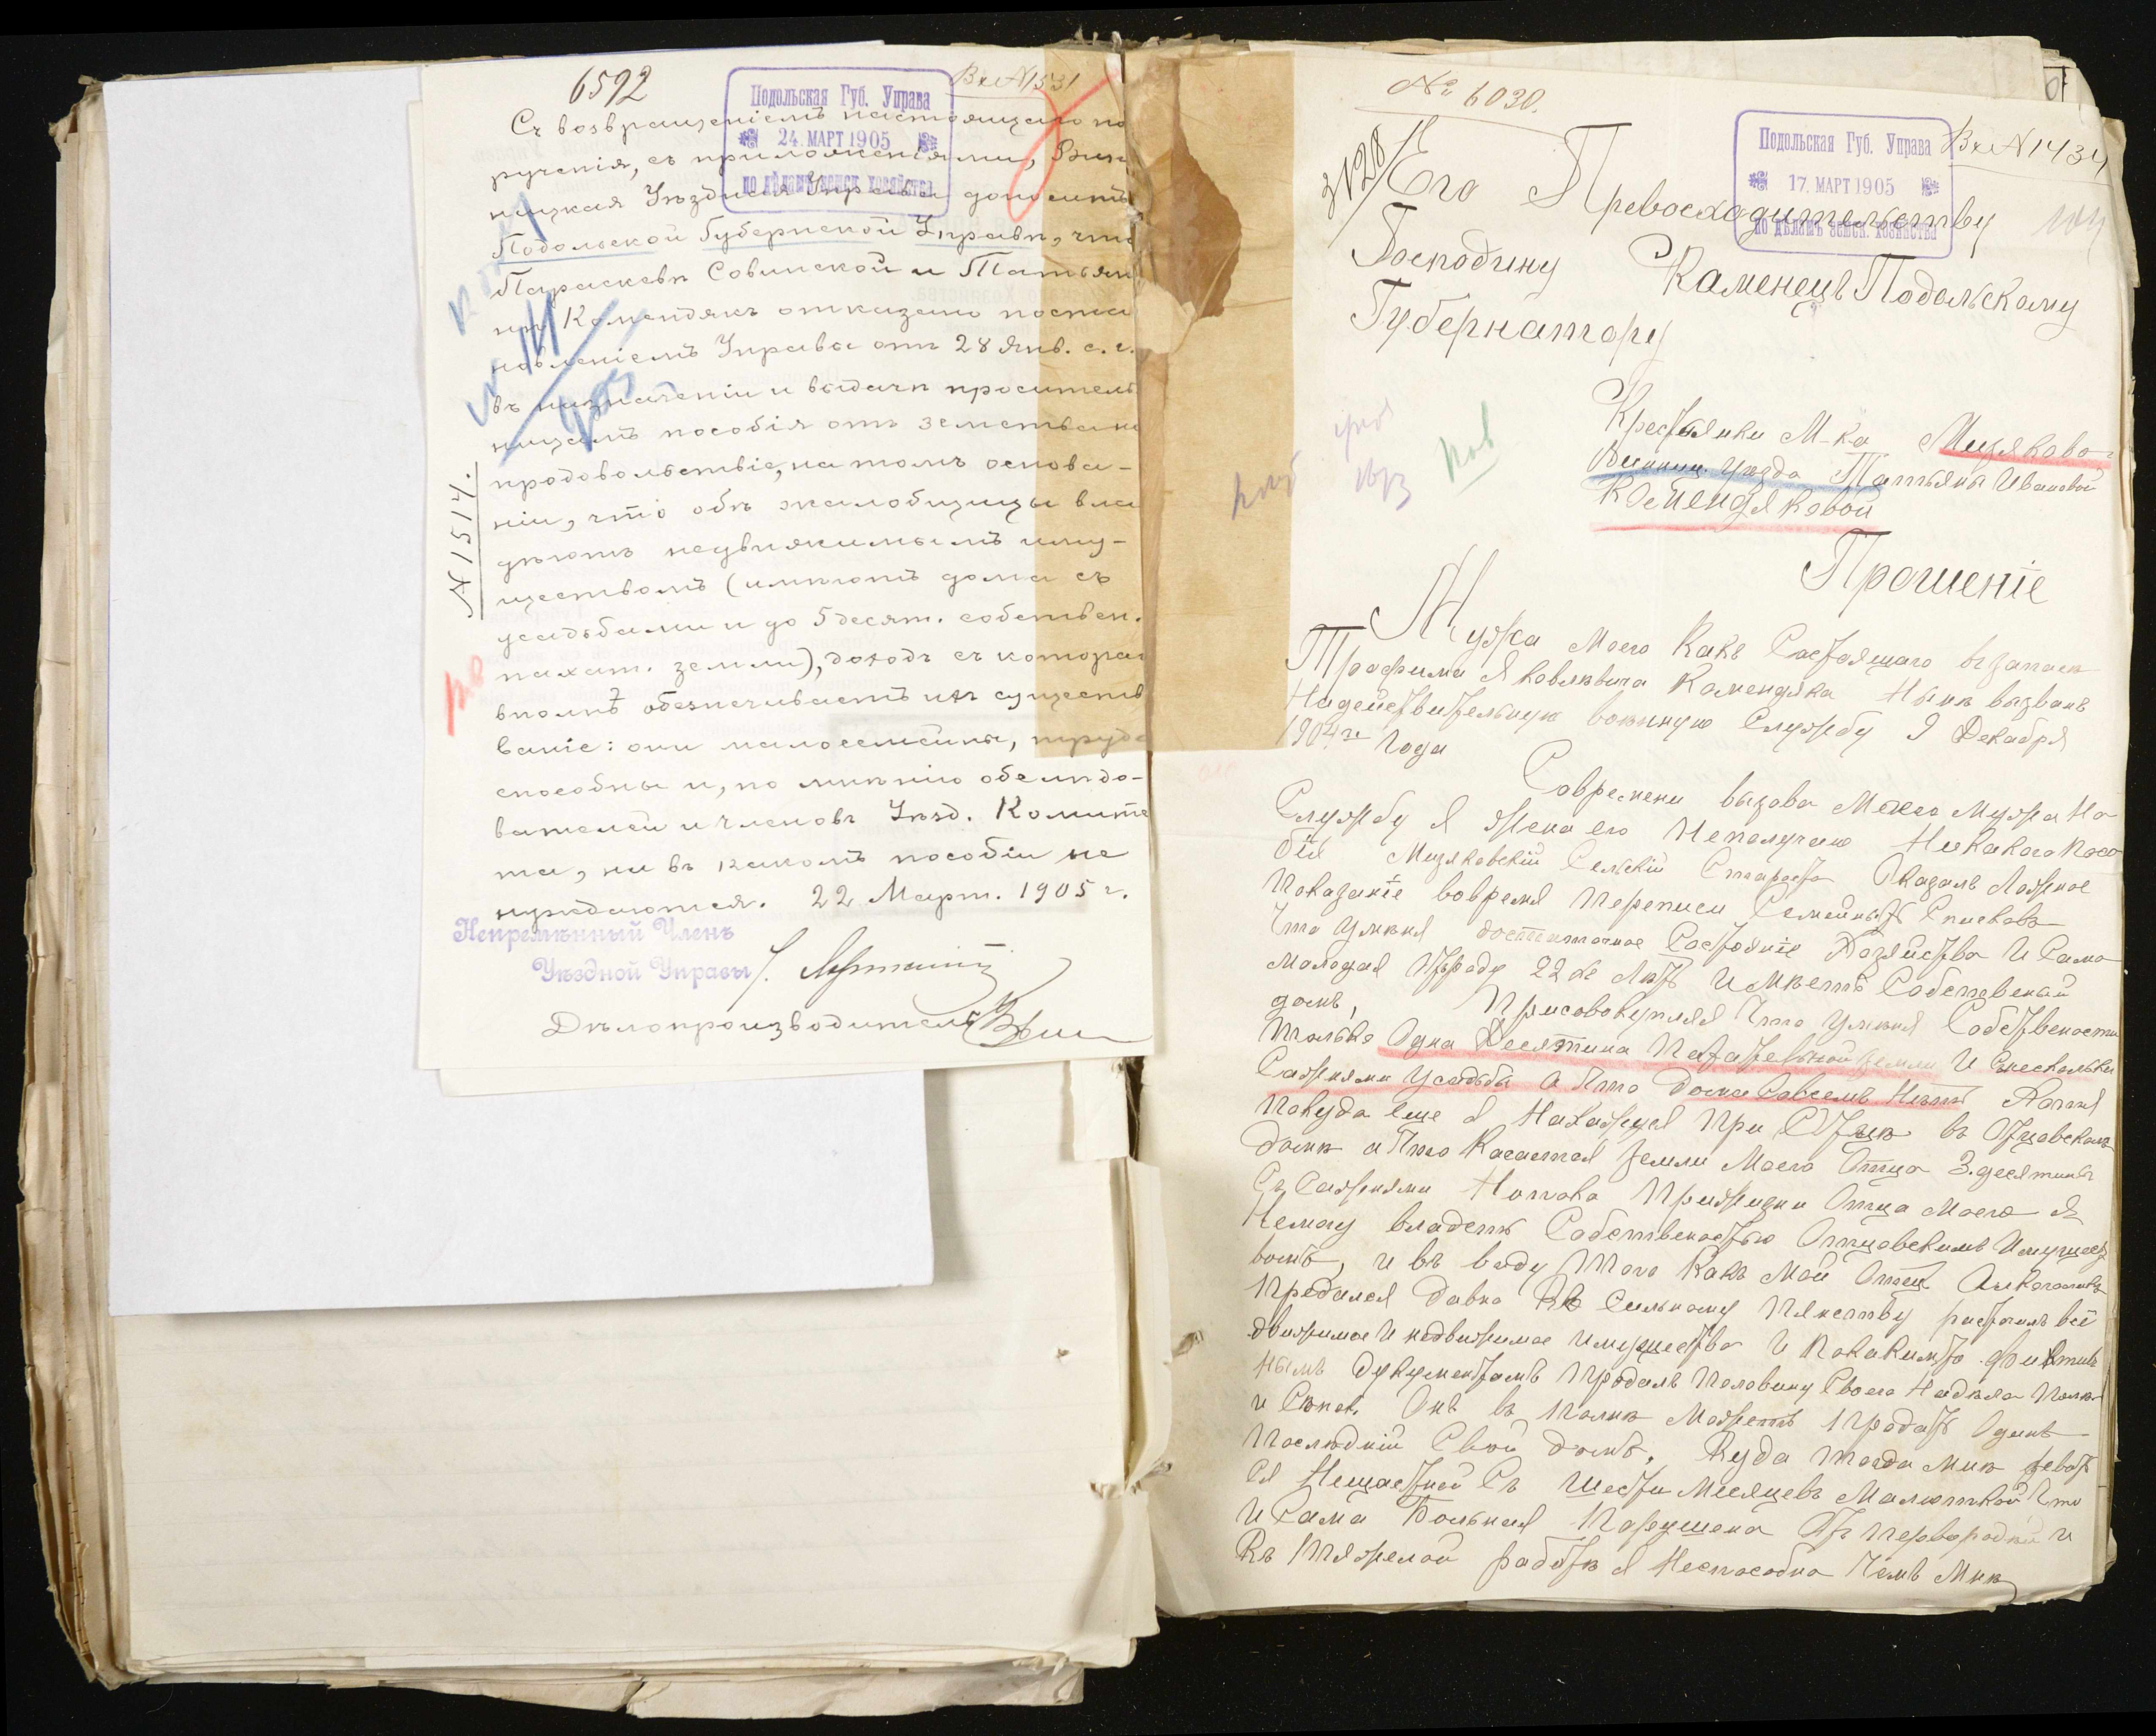 6592
Вх N 1531
Подольская Губ. Управа
24. МАРТ 1905
по дѣламъ земск. хозяйства
Съ возвращеніемъ настоящаго по
рученія, съ приложеніями, Вин
ницкая Уѣздная Управа доноситъ
Подольской Губернской Управѣ, что
Параскевѣ Совинской и Татьян
нѣ Комендякъ отказано поста
новленіемъ Управы отъ 28 Янв. с. г.
въ назначеніи и выдачѣ проситель
ницамъ пособія отъ земства на
продовольствіе, на томъ основа-
ніи, что обѣ жалобщицы вла
дѣютъ недвижимымъ иму-
ществомъ (имѣютъ дома съ
усадьбами и до 5 десят. собствен.
пахат. земли), доходъ съ котора
вполнѣ обезпечиваетъ ихъ существ
ваніе: они малосемейны, трудо
способны и, по мнѣнію обслѣдо-
вателей и членовъ Уѣзд. Комите
та, ни въ какомъ пособіи не
нуждаются. 22 Март. 1905 г.
N 1514.
Непремѣнный Членъ
Уѣздной Управы
Дѣлопроизводитель
№ 6030.
Подольская Губ. Управа
17. МАРТ 1905
по дѣламъ земск. хозяйства
Вх N 1434
3128
Его Превосходительству
Господину Каменецъ Подольскому
Губернатору
Крестьянки М-ка Мизякова
Винниц. Уѣзда Татьяны Ивановой
Комендяковой
Прошеніе
Мужа Моего Какъ Состоящаго въ запасѣ
Трофима Яковлевича Комендяка Нынѣ вызванъ
Надействительную военную Службу 9 Декабря
1904 го Года
Современи вызова Моего Мужа На
Службу Я Жена его Неполучаю Никакого Посо
бія Мизяковскій Сельскій Староста Оказалъ Ложное
Показаніе вовремя Переписи Семейныхъ Списковъ
Что Уменя достаточное Состояніе Хозяйства И Сама
Молодая Отъроду 22 Лѣтъ Имѣетъ Собственый
домъ, Присовокупляя Что Уменя Собствености
только Одна Десятина Пахательной земли И Снескольки
Саженями Усадьбы А Што Дома Совсемъ Нетъ Хотя
Покуда Еще Я Нахожуся При Отцѣ въ Отцовскомъ
Домѣ а Што Касается Земли Моего Отца 3. десятины
Съ Саженями Нотока Прижизни Отца Моего Я
Немогу Владеть Собственостью Отцовскимъ Имущест
вомъ, И въ виду Того Какъ Мой Отецъ Алкоголикъ
Предался Давно Къ Сильному Пянству растратилъ всё
движимое И недвижимое имущество И Покакимто фиктив
нымъ Документамъ Продалъ Половину Своего Надѣла Поля
и Сѣнок. Онъ Можетъ Продать Одинъ
Последній Свой Домъ, Куда тогда Мнѣ деват
ся Нещастной Съ Шести Месяцевъ Малюткой Что
И Сама Больная Порушена Отъ Первородки и
Къ Тяжелой работѣ Я Неспособна Чемъ Мнѣ